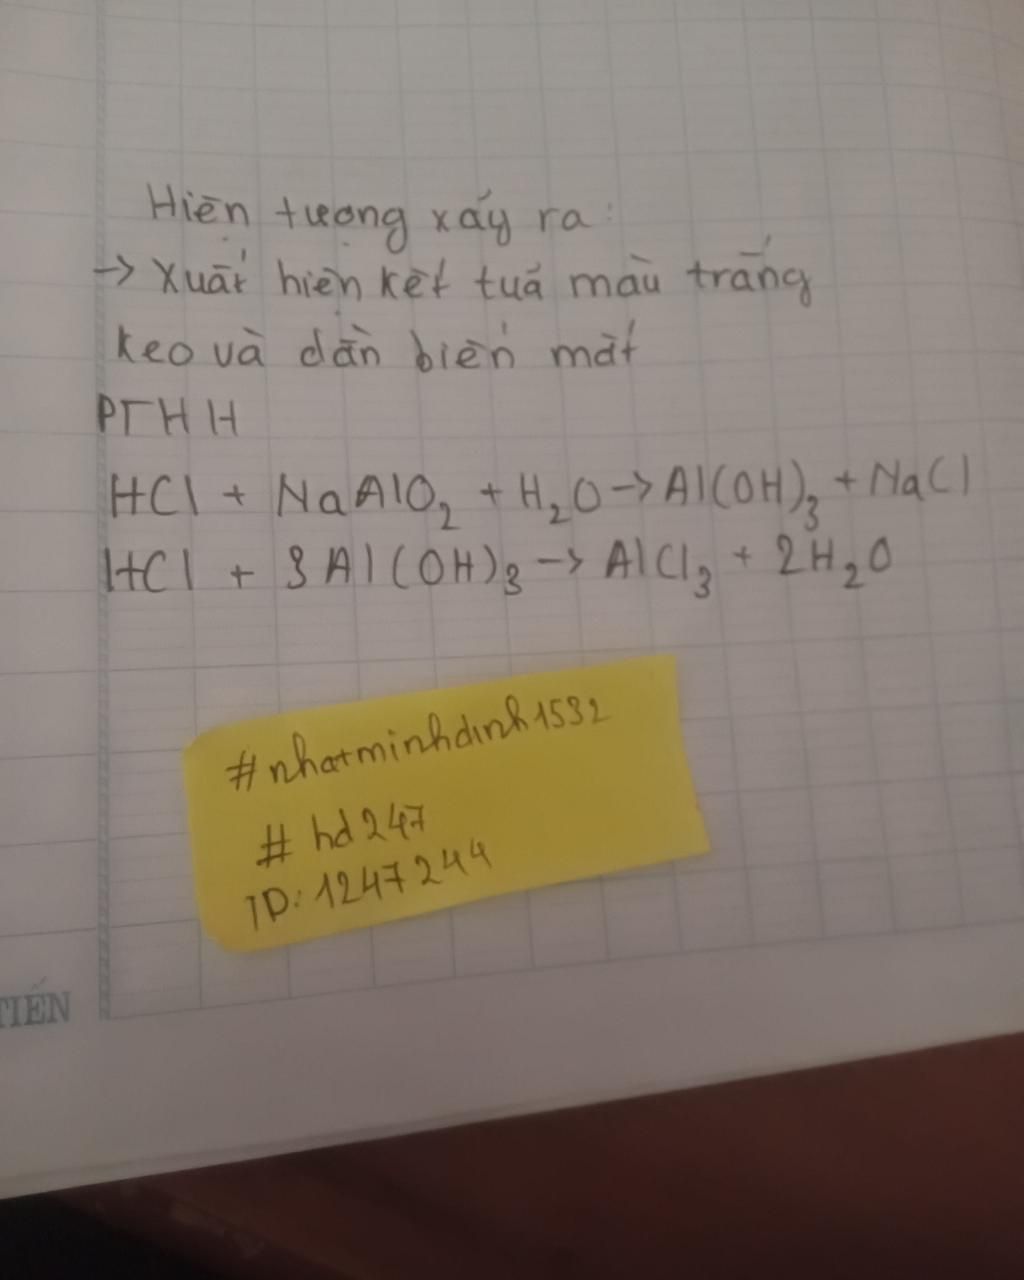 Hiện tượng xảy ra:
→ Xuất hiện kết tuả màu trắng
keo và dần biến mất
PTHH
HCl + NaAlO₂ + H₂O → Al(OH)₃ + NaCl
HCl + 3Al(OH)₃ → AlCl₃ + 2H₂O
#nhatminhdinh1532
# hd247
ID: 1247244
TIẾN